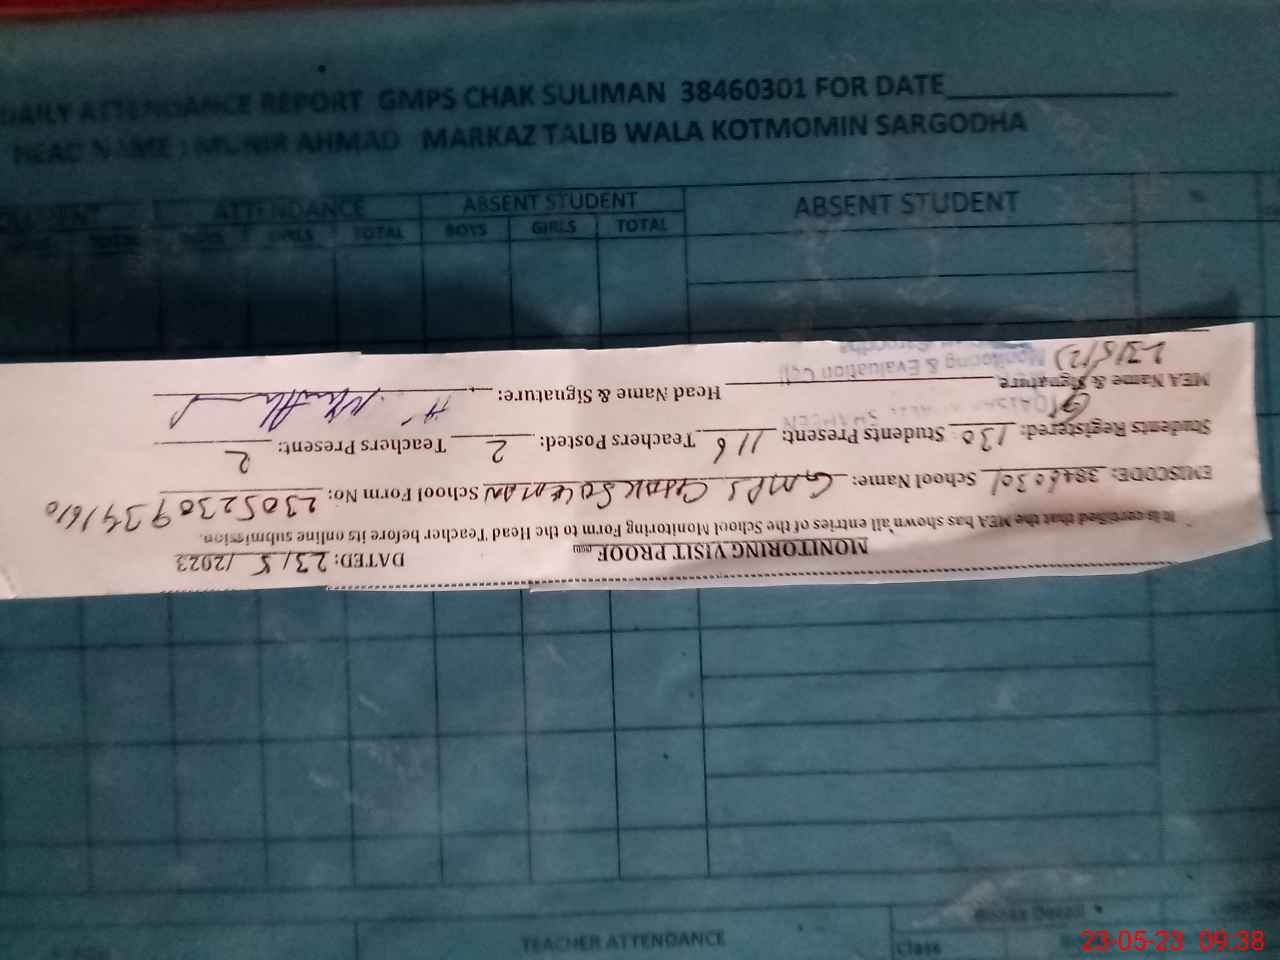 DAILY ATTENDANCE REPORT GMPS CHAK SULIMAN 38460301 FOR DATE
HEAD NAME : MUNIR AHMAD MARKAZ TALIB WALA KOTMOMIN SARGODHA
ATTENDANCE ABSENT STUDENT ABSENT STUDENT %
BOYS GIRLS TOTAL BOYS GIRLS TOTAL
MONITORING VISIT PROOF DATED: 23/5/2023
It is certified that the MEA has shown all entries of the School Monitoring Form to the Head Teacher before its online submission.
EMISCODE: 38460301 School Name: GMPS CHAK SULEMAN School Form No: 23052309341610
Students Registered: 130 Students Present: 116 Teachers Posted: 2 Teachers Present: 2
MEA Name & Signature Head Name & Signature:
Monitoring & Evaluation Cell
23/5/23
TEACHER ATTENDANCE
Class
23-05-23 09:38